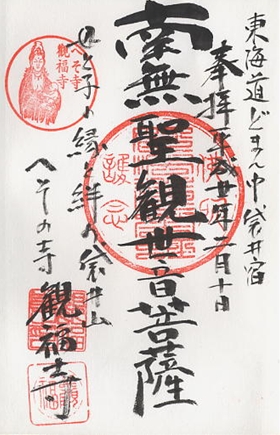 東海道どまん中袋井宿
奉拝 平成廿年二月十日
南無聖観世音菩薩
心と子の縁を絆ぐ袋井山
へその寺 観福寺
へそ寺
観福寺
護念